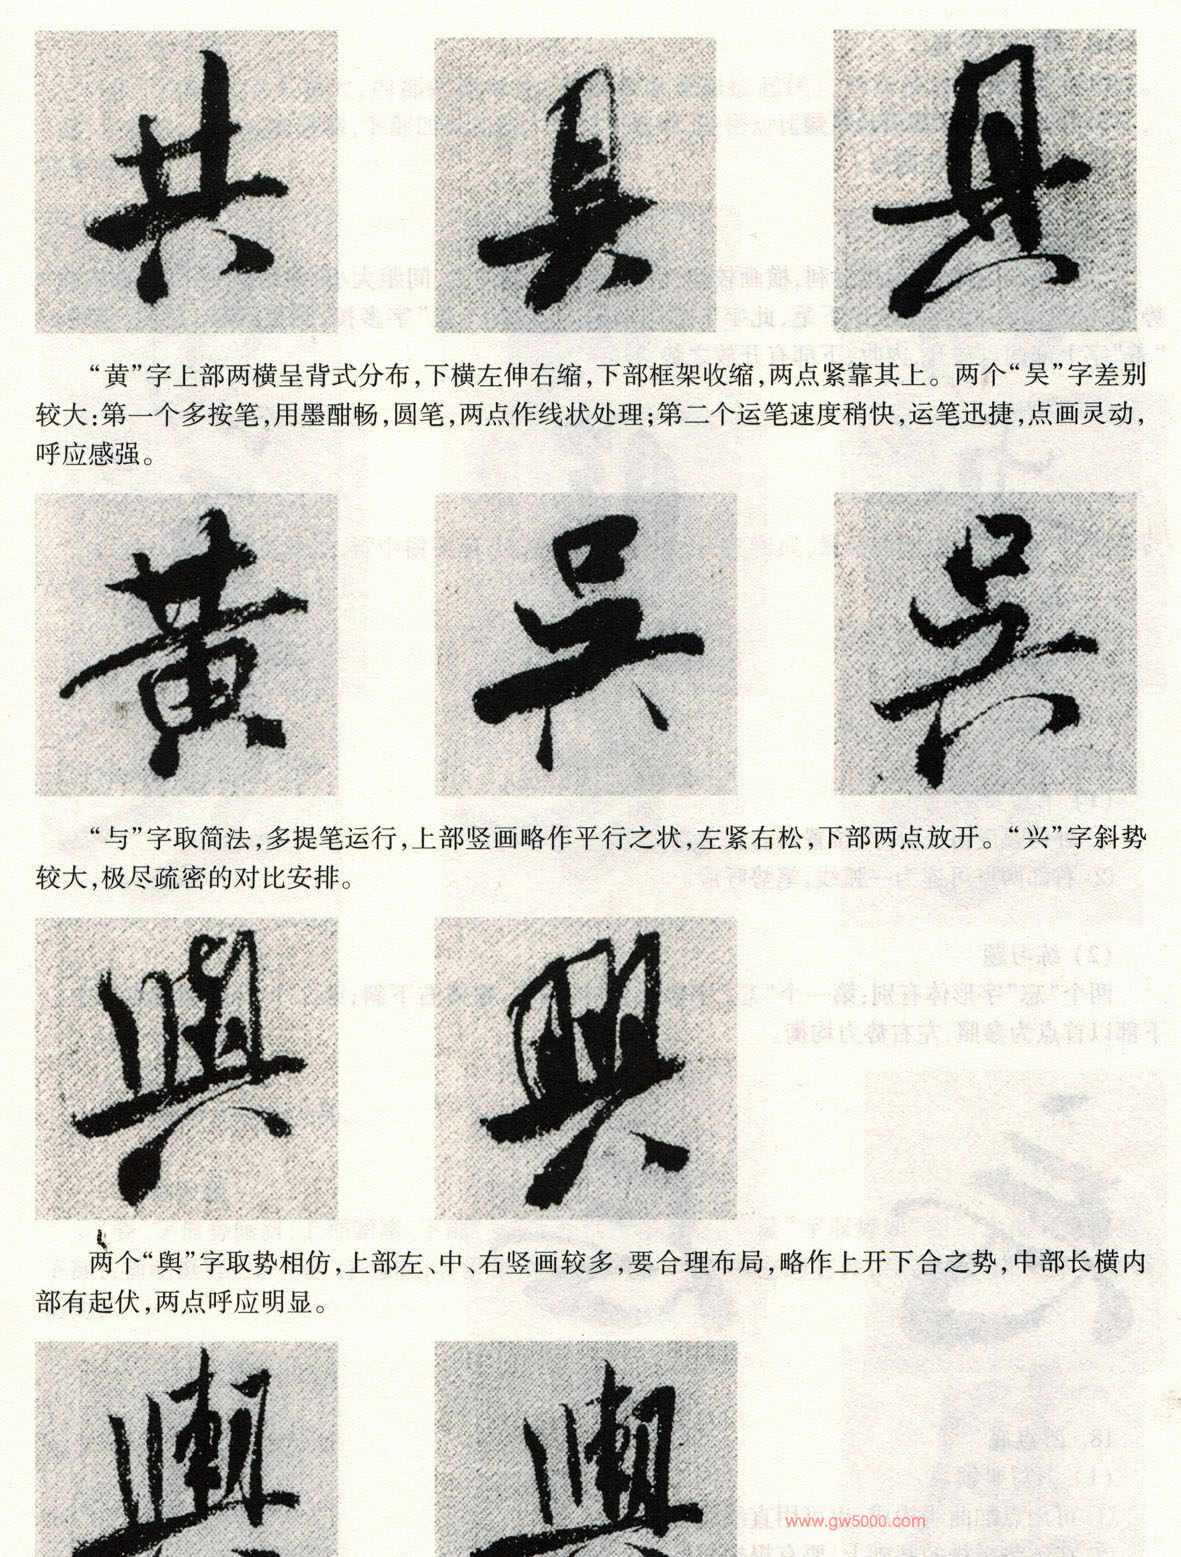 共 具 具
“黄”字上部两横呈背式分布,下横左伸右缩,下部框架收缩,两点紧靠其上。两个“吴”字差别
较大:第一个多按笔,用墨酣畅,圆笔,两点作线状处理;第二个运笔速度稍快,运笔迅捷,点画灵动,
呼应感强。
黄 吴 吴
“与”字取简法,多提笔运行,上部竖画略作平行之状,左紧右松,下部两点放开。“兴”字斜势
较大,极尽疏密的对比安排。
與 興
两个“舆”字取势相仿,上部左、中、右竖画较多,要合理布局,略作上开下合之势,中部长横内
部有起伏,两点呼应明显。
輿 輿
www.gw5000.com